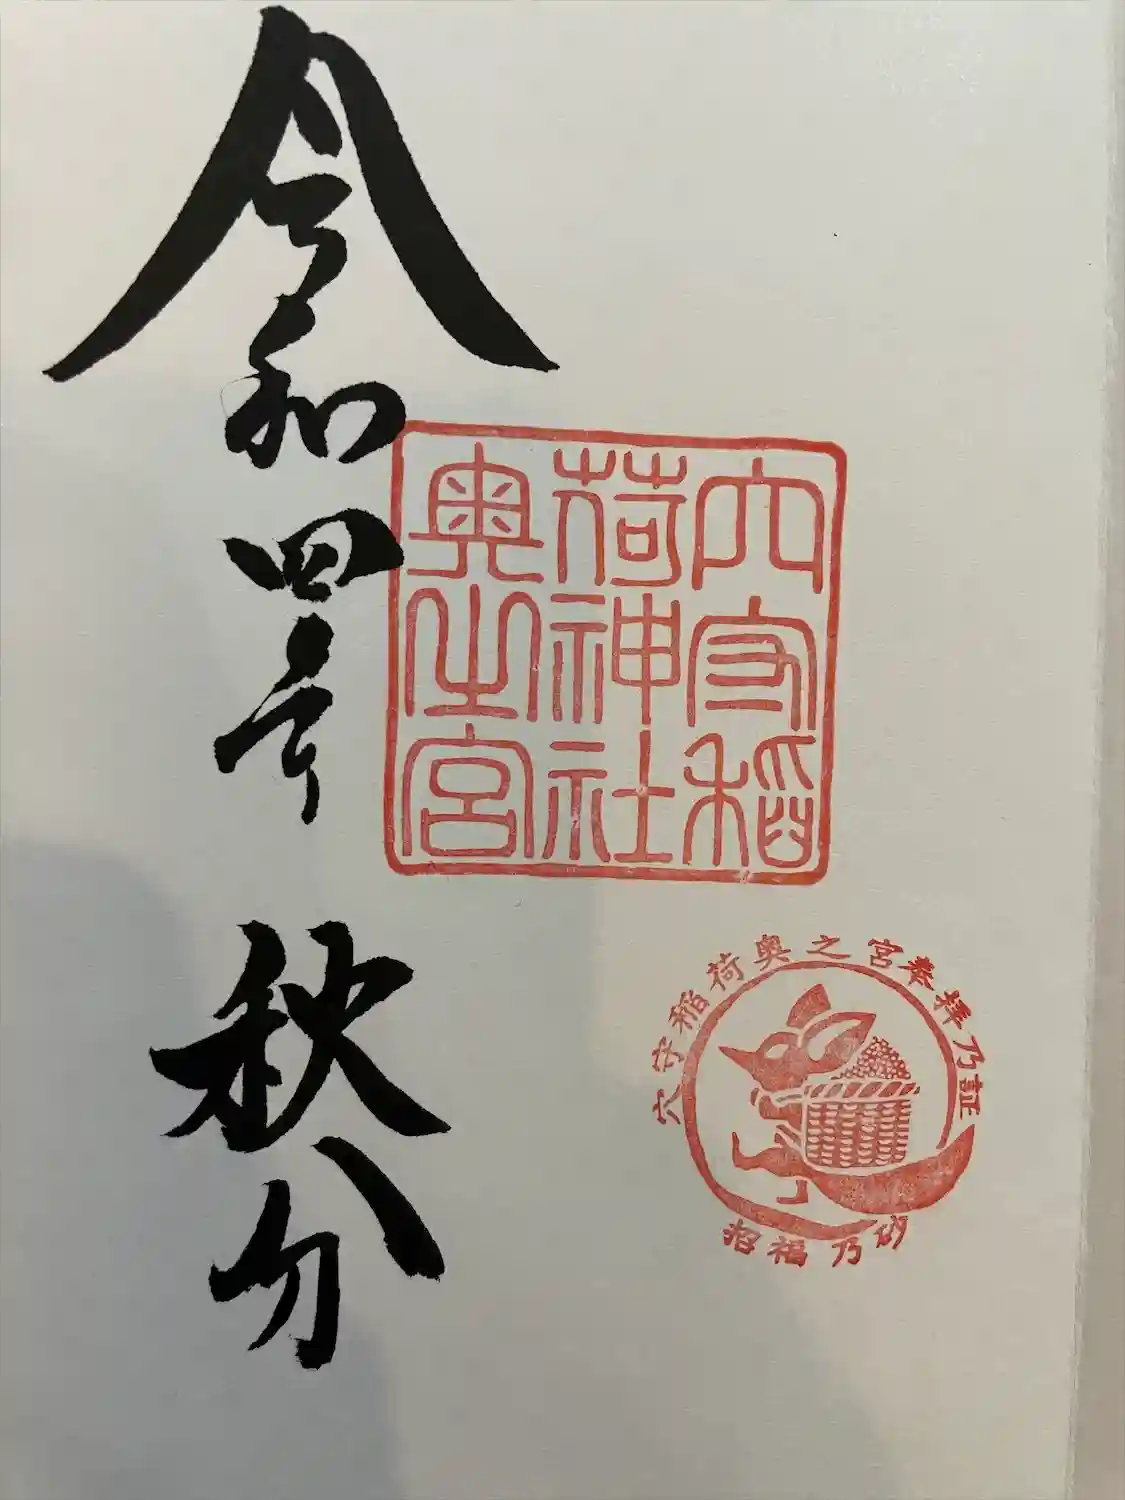 穴守稲
荷神社
奥之宮
穴守稲荷奥之宮奉拝乃証
招福乃砂
令和四年 秋分